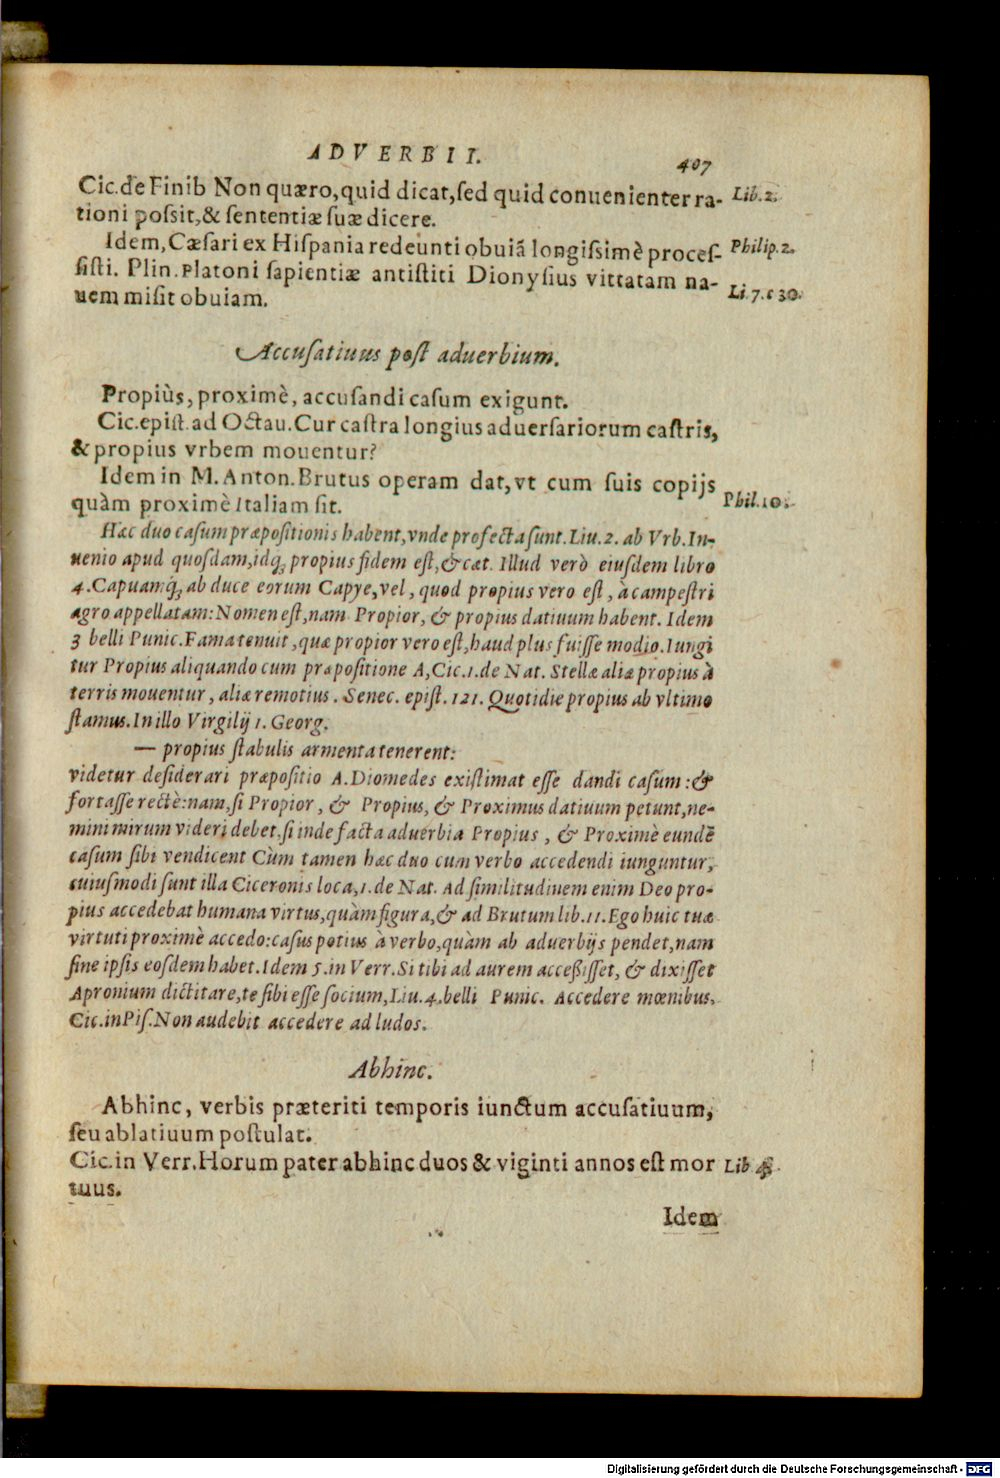 ADVERBII. 407
Cic. de Finib Non quæro, quid dicat, sed quid conuenienter ra- Lib. 2.
tioni possit, & sententiæ suæ dicere.
Idem, Cæsari ex Hispania redeunti obuiã longissimè proces- Philip. 2.
sisti. Plin. Platoni sapientiæ antistiti Dionysius vittatam na- Li. 7. c 30.
uem misit obuiam.
Accusatiuus post aduerbium.
Propiùs, proximè, accusandi casum exigunt.
Cic. epist. ad Octau. Cur castra longius aduersariorum castris,
& propius vrbem mouentur?
Idem in M. Anton. Brutus operam dat, vt cum suis copijs
quàm proximè Italiam sit. Phil. 10.
Hæc duo casum præpositionis habent, vnde profecta sunt. Liu. 2. ab Vrb. In-
uenio apud quosdam, idq; propius fidem est, & cæt. Illud verò eiusdem libro
4. Capuamq; ab duce eorum Capye, vel, quod propius vero est, à campestri
agro appellatam: Nomen est, nam Propior, & propius datiuum habent. Idem
3 belli Punic. Fama tenuit, quæ propior vero est, haud plus fuisse modio. Iungi
tur Propius aliquando cum præpositione A, Cic. 1. de Nat. Stellæ aliæ propius à
terris mouentur, aliæ remotius. Senec. epist. 121. Quotidie propius ab vltimo
stamus. In illo Virgilij 1. Georg.
— propius stabulis armenta tenerent:
videtur desiderari præpositio A. Diomedes existimat esse dandi casum: &
fortasse rectè: nam, si Propior, & Propius, & Proximus datiuum petunt, ne-
mini mirum videri debet, si inde facta aduerbia Propius, & Proximè eundẽ
casum sibi vendicent Cùm tamen hæc duo cum verbo accedendi iunguntur,
cuiusmodi sunt illa Ciceronis loca, 1. de Nat. Ad similitudinem enim Deo pro-
pius accedebat humana virtus, quàm figura, & ad Brutum lib. 11. Ego huic tuæ
virtuti proximè accedo: casus potius à verbo, quàm ab aduerbijs pendet, nam
sine ipsis eosdem habet. Idem 5. in Verr. Si tibi ad aurem accessisset, & dixisset
Apronium dictitare, te sibi esse socium, Liu. 4. belli Punic. Accedere mœnibus.
Cic. in Pis. Non audebit accedere ad ludos.
Abhinc.
Abhinc, verbis præteriti temporis iunctum accusatiuum,
seu ablatiuum postulat.
Cic. in Verr. Horum pater abhinc duos & viginti annos est mor Lib.
tuus.
Idem
Digitalisierung gefördert durch die Deutsche Forschungsgemeinschaft - DFG